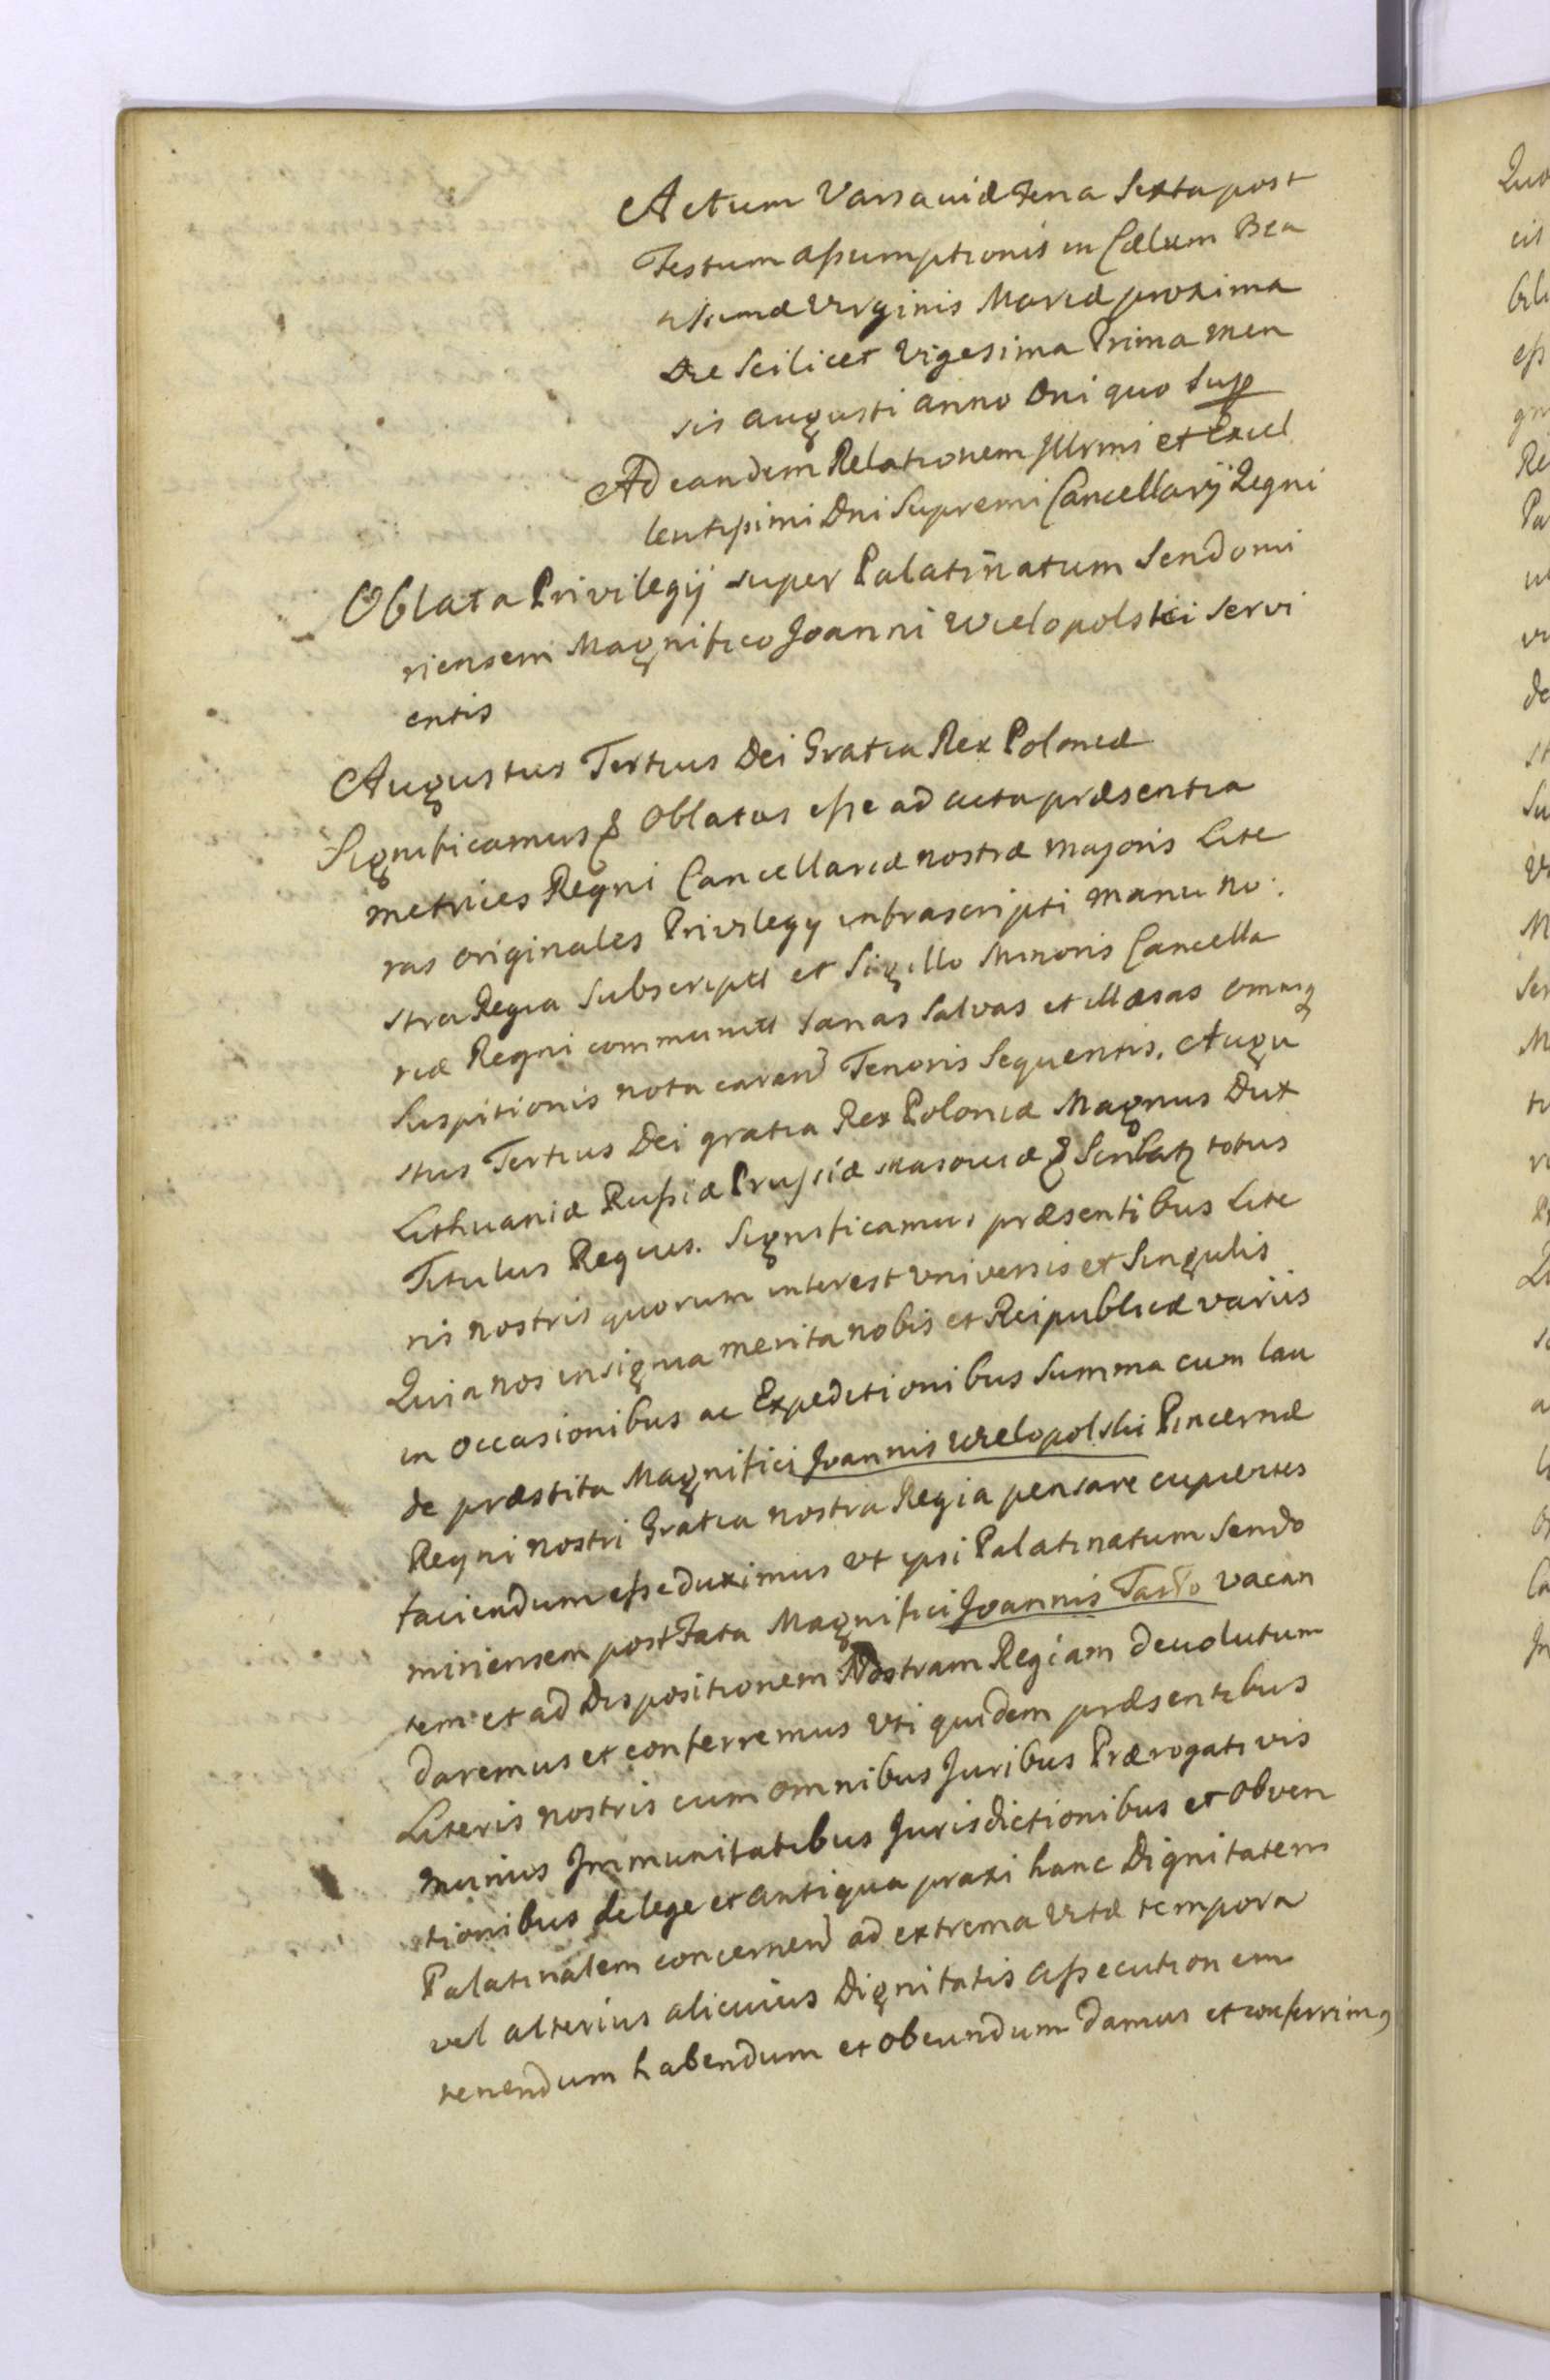 Actum Varsaviæ Feria Sexta post
Festum assumptionis in Cælum Bea
tissimæ Virginis Mariæ proxima
Die Scilicet Vigesima Prima Men
sis augusti anno Dni quo Sup
Ad eandem Relationem Illrmi et Excel
lentissimi Dni Supremi Cancellarij Regni
Oblata Privilegij super Palatinatum Sendomi
riensem Magnifico Joanni Wielopolski servi
entis
Augustus Tertius Dei Gratia Rex Poloniæ
Significamus & Oblatas esse ad acta præsentia
metrices Regni Cancellariæ nostræ majoris Lite
ras originales Privilegy infrascripti manu no:
stra Regia Subscriptt et Sigillo Minoris Cancella
riæ Regni communitt sanas Salvas et illæsas omniq
Suspitionis nota caren Tenoris Sequentis. Augu
stus Tertius Dei gratia Rex Poloniæ Magnus Dux
Lithuaniæ Russiæ Prussiæ Masoviæ & totus
Titulus Regius. Significamus præsentibus Lite
ris nostris quorum interest Universis et Singulis
Quia nos insignia merita nobis et Reipublicæ variis
in occasionibus ac Expeditionibus Summa cum lau
de præstita Magnifici Joannis Wielopolski Pincernæ
Regni nostri Gratia nostra Regia pensare cupientes
faciendum esse duximus Ut ipsi Palatinatum Sendo
miriensem post Fata Magnifici Joannis Tarlo vacan
tem et ad Dispositionem Nostram Regiam devolutum
daremus et conferremus Uti quidem præsentibus
Literis nostris cum omnibus Juribus Prærogativis
muniis Immunitatibus Jurisdictionibus et obven
tionibus de lege et antiqua praxi hanc Dignitatem
Palatinalem concernen ad extrema Vitæ tempora
vel alterius alicuius Dignitatis assecutionem
tenendum habendum et obeundum damus et conferrimq